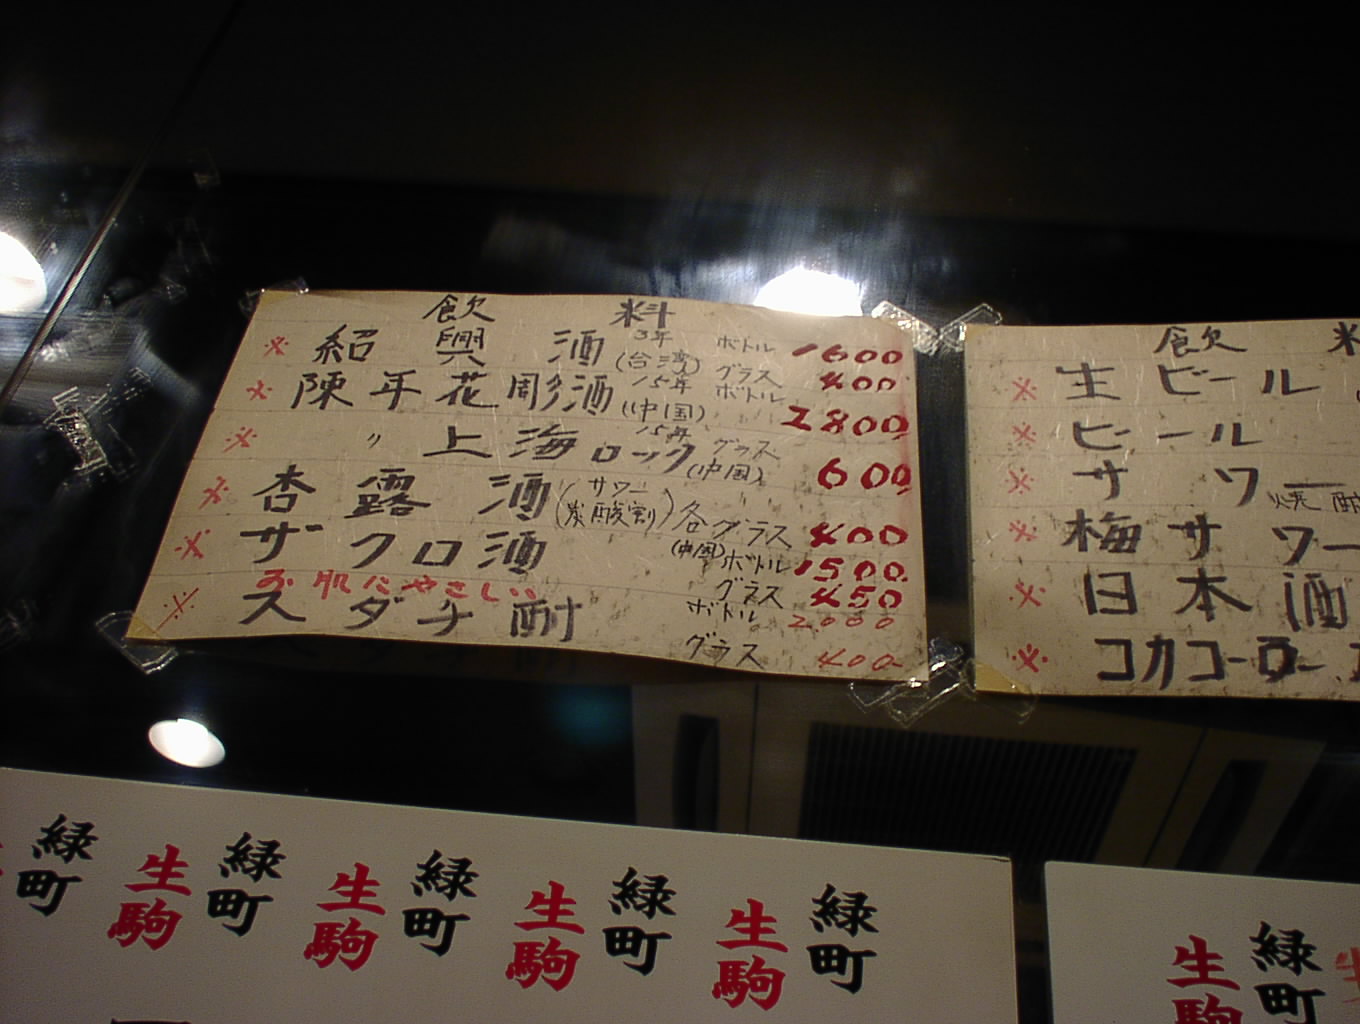 飲 料
※ 紹興酒 3年 (台湾) ボトル 1600
グラス 400
※ 陳年花彫酒 15年 (中国) ボトル 2800
※ 〃 上海ロック 15年 (中国) グラス 600
※ 杏露酒 (サワー 炭酸割) 各グラス 400
※ ザクロ酒 (中国) ボトル 1500
お肌にやさしい グラス 450
※ スダチ酎 ボトル 2000
グラス 400
飲 料
※ 生ビール
※ ビール
※ サワー 焼酎
※ 梅サワー
※ 日本酒
※ コカコーラー
緑町 生駒 緑町 生駒 緑町 生駒 緑町 生駒 緑町
生駒 緑町